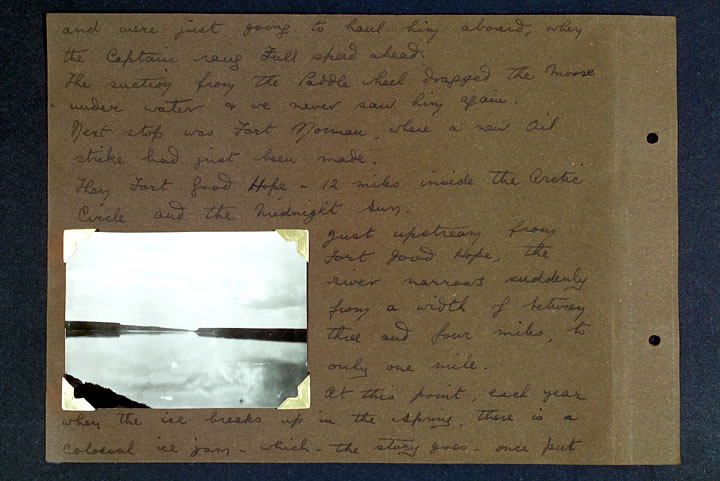 and were just going to haul him aboard, when
the Captain rang Full speed ahead.
The suction from the Paddle wheel dragged the Moose
under water & we never saw him again.
Next stop was Fort Norman, where a new Oil
strike had just been made.
Then Fort Good Hope - 12 miles inside the Arctic
Circle and the Midnight Sun.
Just upstream from
Fort Good Hope, the
river narrows suddenly
from a width of between
three and four miles, to
only one mile.
At this point, each year
when the ice breaks up in the spring, there is a
colossal ice jam - which - the story goes - once put